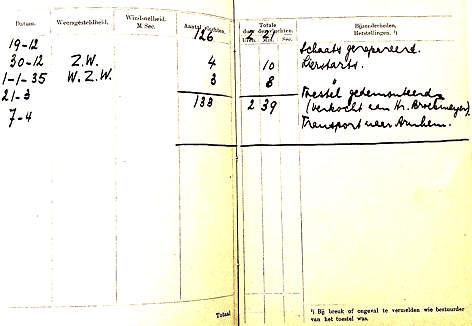 Datum. Weersgesteldheid. Windsnelheid. M Sec. Aantal vluchten. Totale duur der vluchten. Uren. Min. Sec. Bijzonderheden, Herstellingen. ¹)
126 2 21
19-12 Schaats gerepareerd.
30-12 Z.W. 4 10 Lierstarts.
1-1-35 W.Z.W. 3 8 "
21-3 Toestel gedemonteerd
133 2 39 (verkocht aan Hr. Broekmeyer)
7-4 Transport naar Arnhem.
Totaal
¹) Bij breuk of ongeval te vermelden wie bestuurder
van het toestel was.